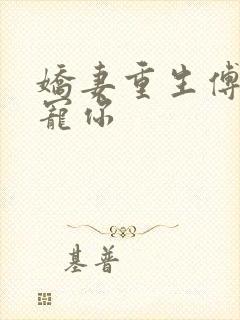 嬌妻重生傅
寵你
基普